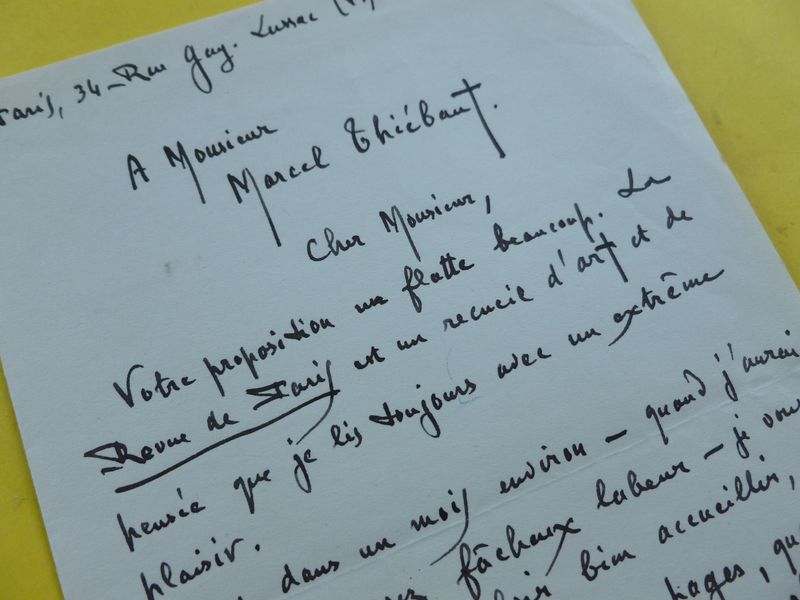 Paris, 34 - Rue Gay-Lussac (V)
A Monsieur
Marcel Thiébaut.
Cher Monsieur,
Votre proposition me flatte beaucoup. La
Revue de Paris est un recueil d'art et de
pensée que je lis toujours avec un extrême
plaisir.
dans un mois environ — quand j'aurai
fâcheux labeur — je vous
bien accueillir,
pages,